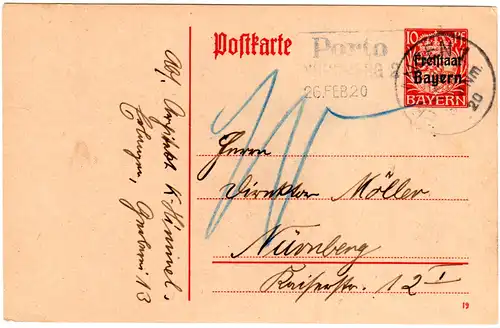 Postkarte
Porto
26.FEB.20
10
Freistaat
Bayern
BAYERN
Nm.
20
Herrn
Direktor Möller
Nürnberg
Kaiserstr. 12 I
Abs. Architekt K. Himmel.
Erlangen,
19